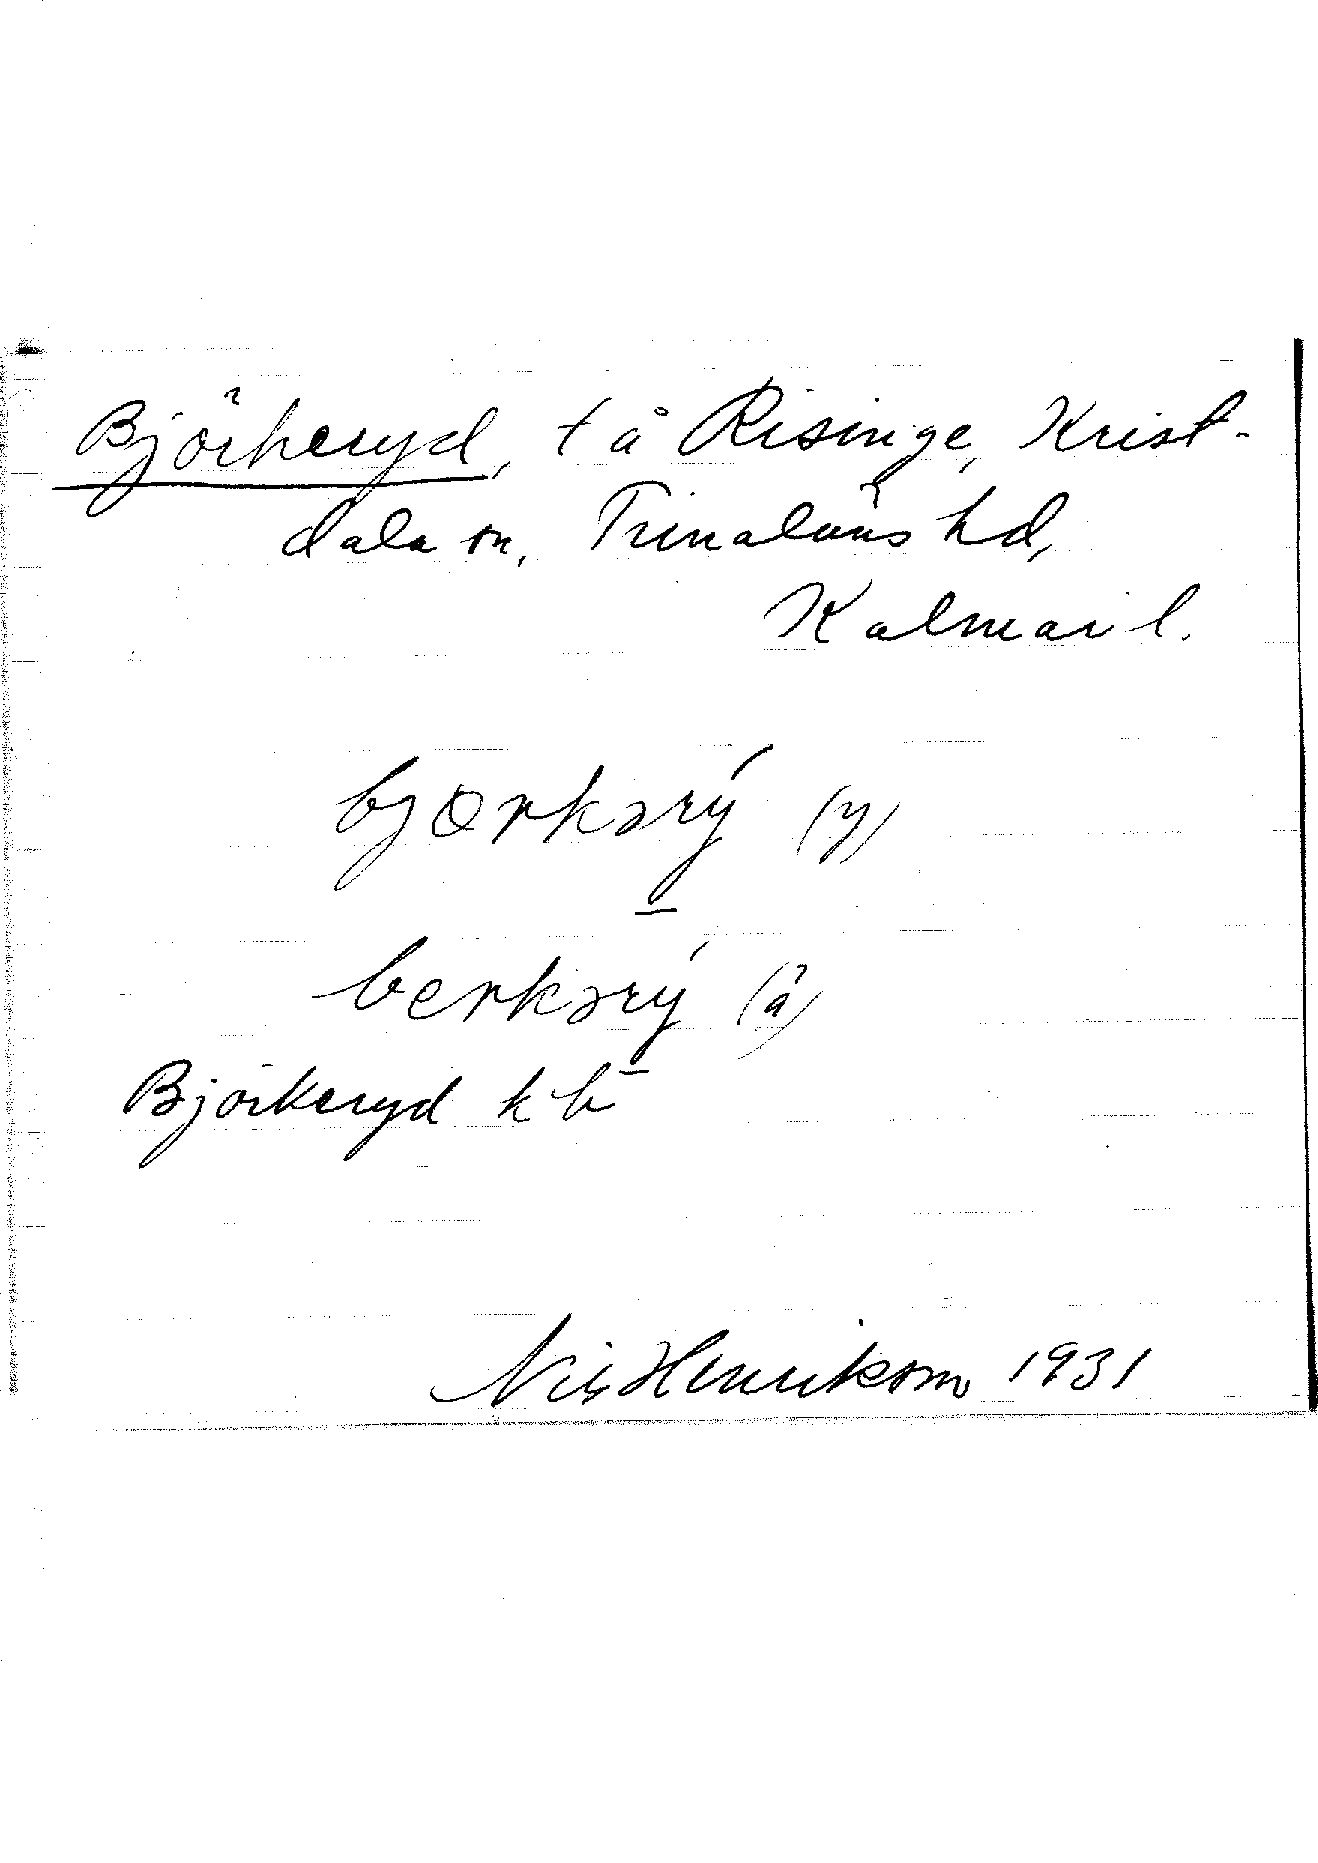 Björkeryd, t å Risinge, Krist-
dala sn, Tunaläns hd,
Kalmar l.
bjørkərý (y)
berkərý (ä)
Björkeryd kb
Nils Henrikson 1931